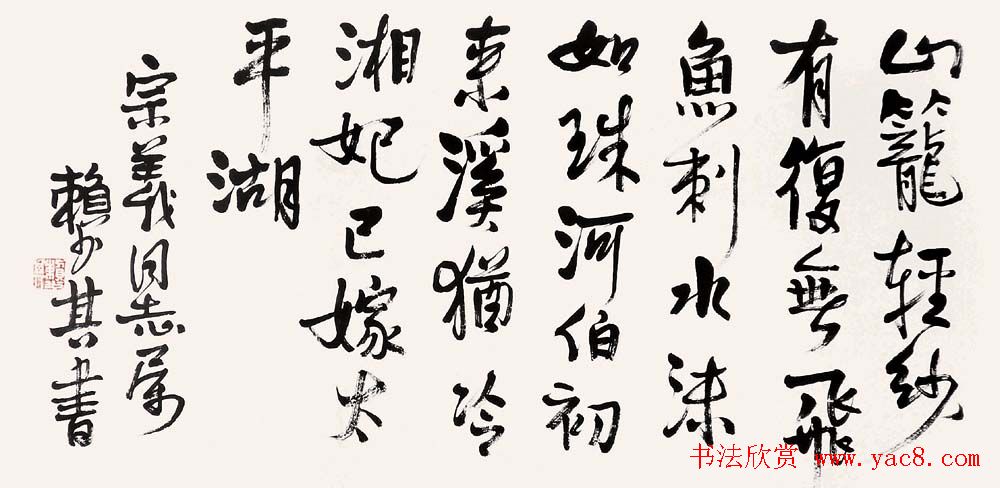 山籠輕紗
有復無飛
魚刺水沫
如珠河伯初
來溪猶冷
湘妃已嫁太
平湖
宗義同志属
賴少其書
书法欣赏 www.yac8.com